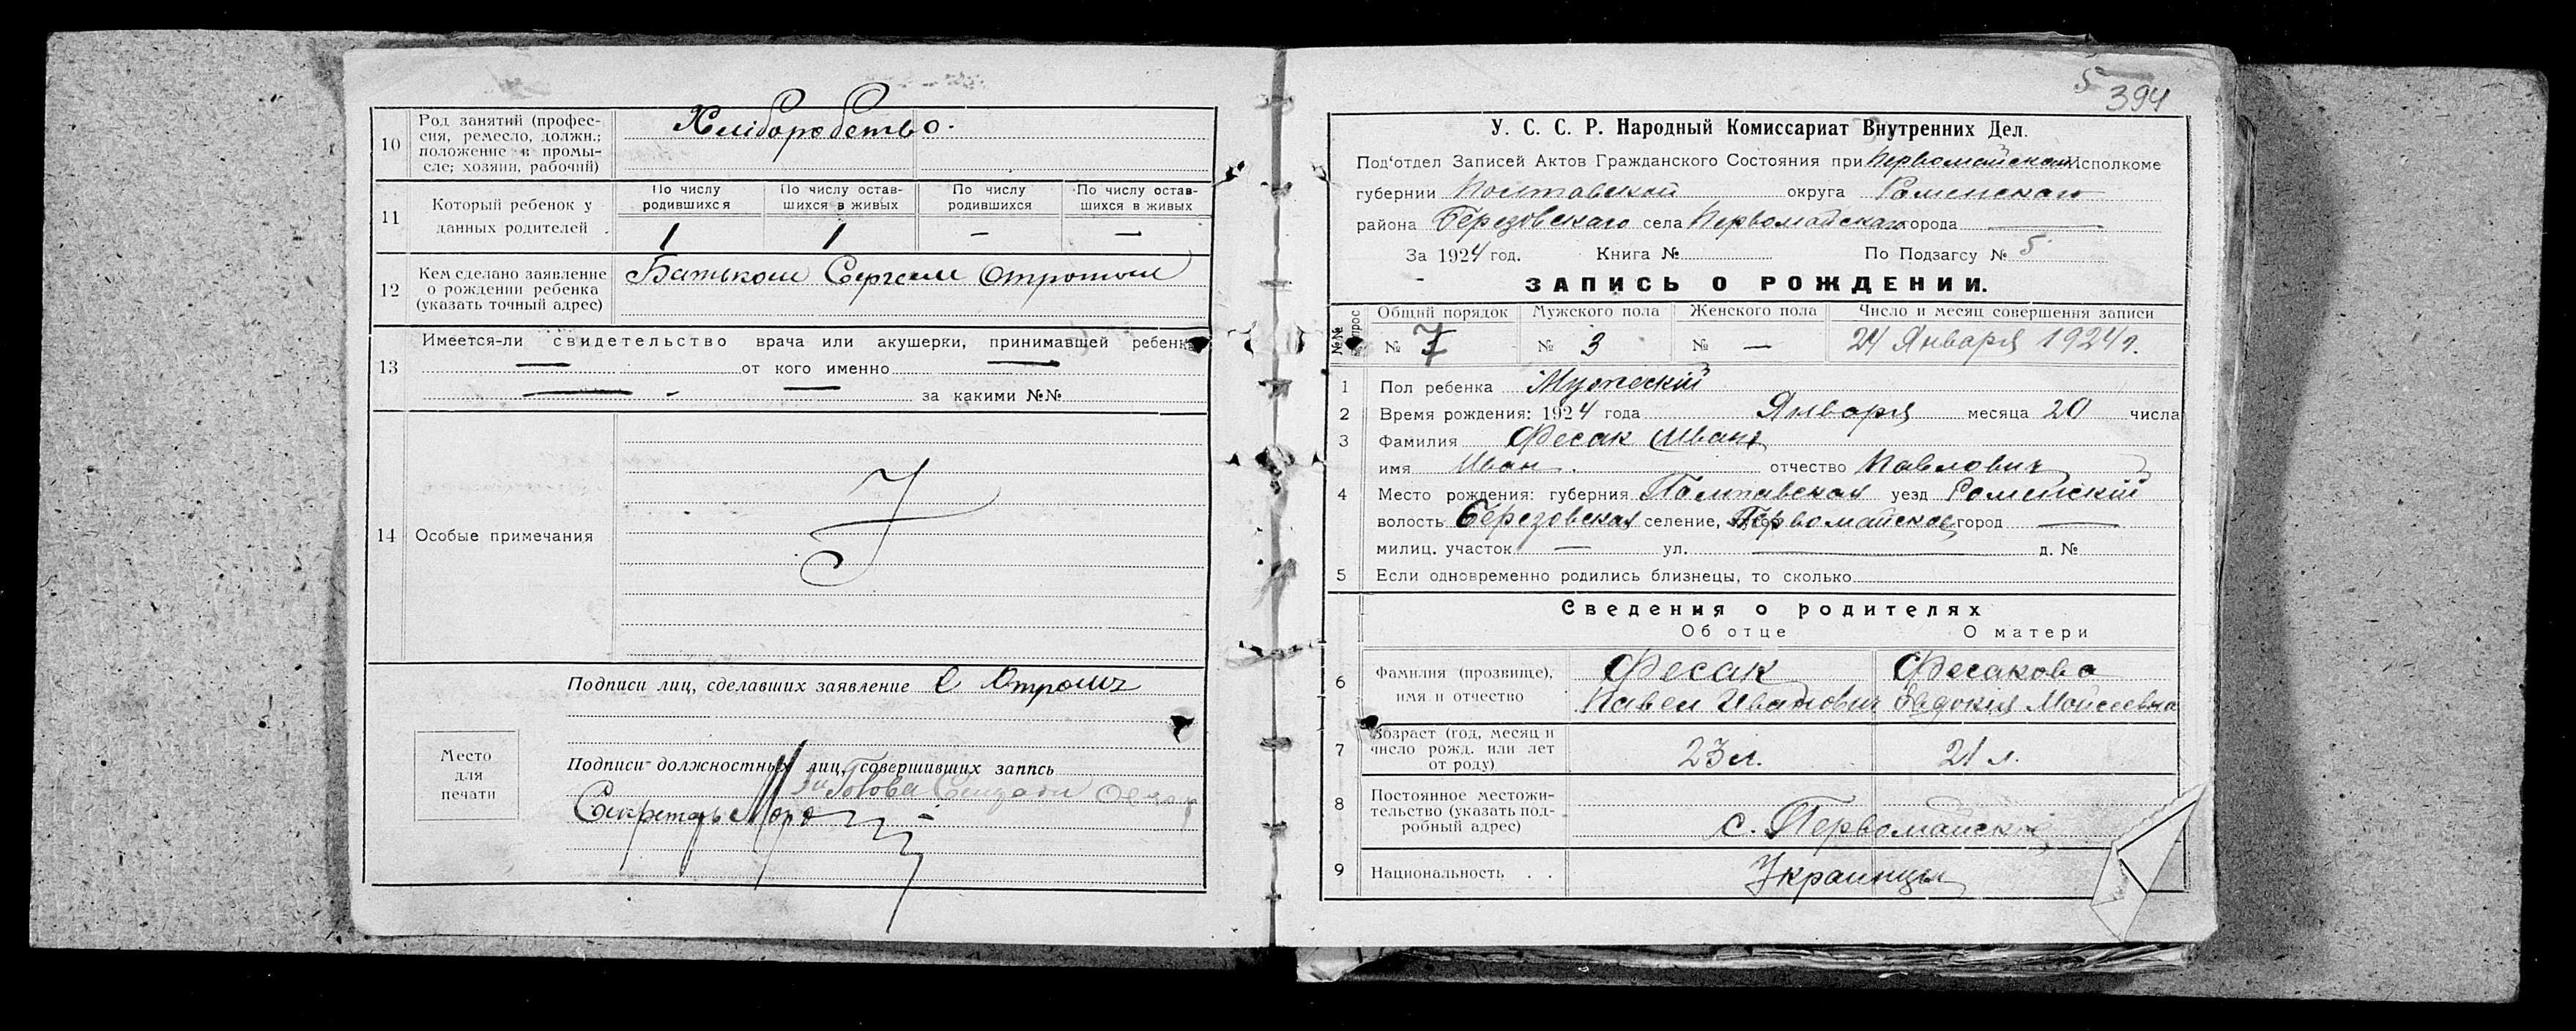 10 Род занятий (профес-
сия, ремесло, должн.;
положение в промы-
сле; хозяин, рабочий)
Хліборобство.
11 Который ребенок у
данных родителей
По числу
родившихся
По числу остав-
шихся в живых
По числу
родившихся
По числу остав-
шихся в живых
1 1 — —
12 Кем сделано заявление
о рождении ребенка
(указать точный адрес)
Батьком Сергеем Отрошом
13 Имеется-ли свидетельство врача или акушерки, принимавшей ребенка
— от кого именно —
— — за какими №№
14 Особые примечания
Подписи лиц, сделавших заявление С Отрош
Место
для
печати
Подписи должностных лиц, совершивших запись
Голова
Секретарь
5
394
У. С. С. Р. Народный Комиссариат Внутренних Дел.
Под'отдел Записей Актов Гражданского Состояния при Первомайском Исполкоме
губернии Полтавской округа Роменскаго
района Березовскаго села Первомайскаго города —
За 1924 год. Книга № По Подзагсу № 5
ЗАПИСЬ О РОЖДЕНИИ.
№№ Общий порядок Мужского пола Женского пола Число и месяц совершения записи
№ 7 № 3 № — 24 Января 1924 г.
1 Пол ребенка Мужескій
2 Время рождения: 1924 года Января месяца 20 числа
3 Фамилия Фесак Иван
имя Иван. отчество Павлович
4 Место рождения: губерния Полтавская уезд Роменскій
волость Березовская селение, Первомайское город —
милиц. участок — ул. — д. №
5 Если одновременно родились близнецы, то сколько
Сведения о родителях
Об отце О матери
6 Фамилия (прозвище),
имя и отчество
Фесак
Павел Иванович
Фесакова
Евдокія Мойсеевна
7 Возраст (год, месяц и
число рожд. или лет
от роду)
23 л. 21 л.
8 Постоянное местожи-
тельство (указать под-
робный адрес)
с. Первомайское
9 Национальность . . Украинцы